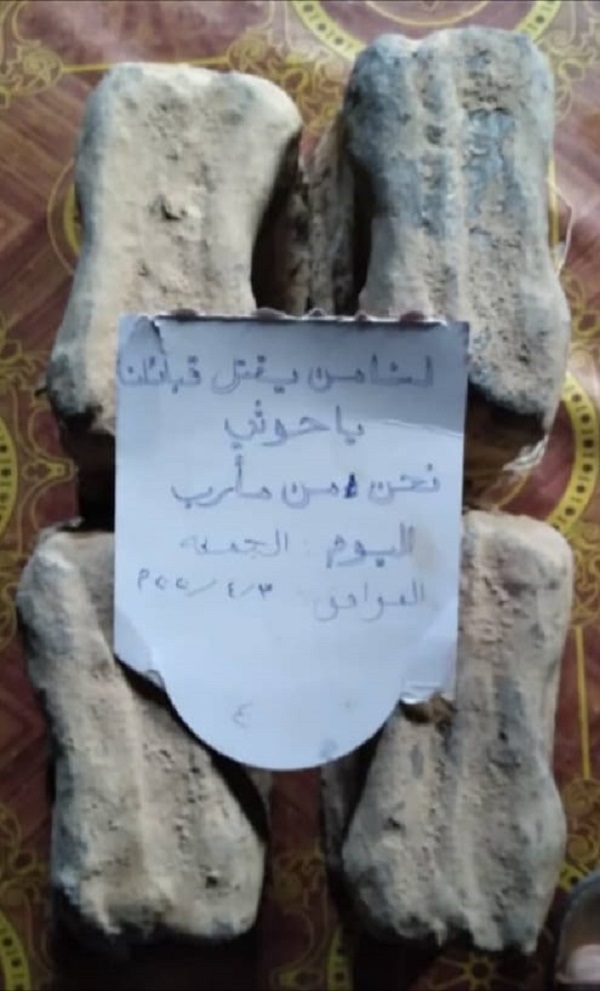 لسنا من يقتل قبائلنا
يا حوثي
نحن من مأرب
اليوم : الجمعه
الموافق ٤/٣/
٤